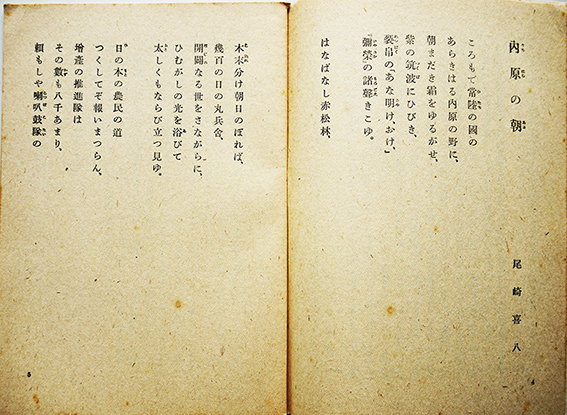 内原の朝
尾崎喜八
ころもて常陸の國の
あらきはる内原の野に、
朝まだき霜をゆるがせ、
紫の筑波にひびき、
裂帛の「あな明け、おけ」
「彌榮の諸聲きこゆ。
はなばなし赤松林、
木末分け朝日のぼれば、
幾百の日の丸兵舍、
開闢なる世をさながらに、
ひむがしの光を浴びて
太しくもならび立つ見ゆ。
日の本の農民の道
つくしてぞ報いまつらん、
增産の推進隊は
その數も八千あまり、
賴もしや喇叭鼓隊の
5